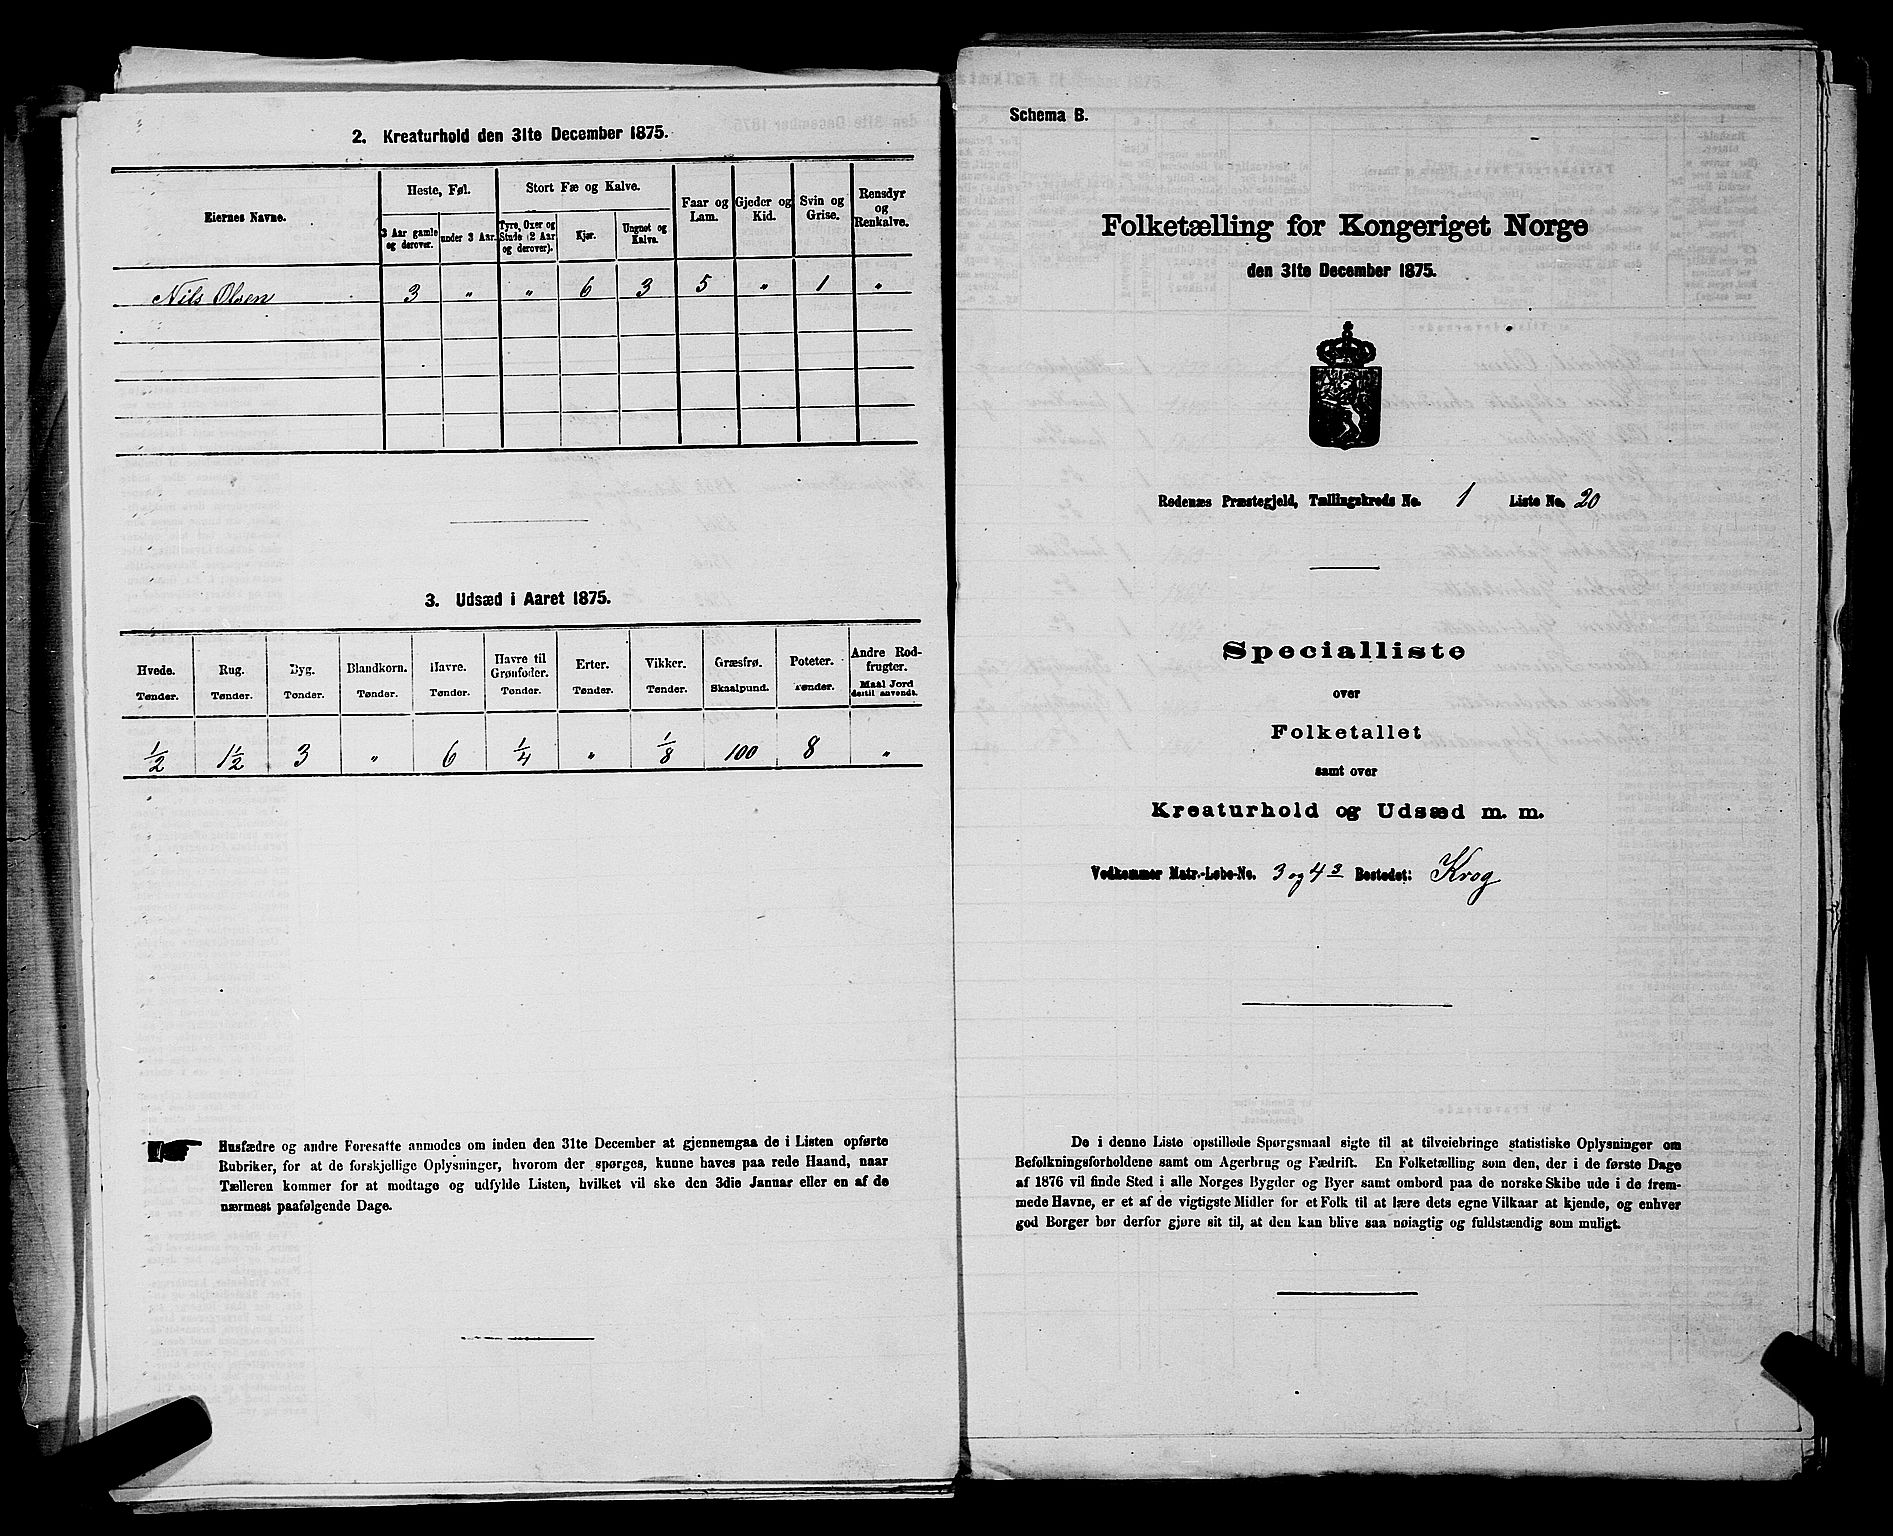 2. Kreaturhold den 31te December 1875.
Eiernes Navne.
Heste, Føl.
Stort Fæ og Kalve.
Faar og Lam.
Gjeder og Kid.
Svin og Grise.
Rensdyr og Renkalve.
3 Aar gamle og derover.
under 3 Aar.
Tyre, Oxer og Stude (2 Aar og derover).
Kjør.
Ungnøt og Kalve.
Nils Olsen 3 " " 6 3 5 " 1 "
3. Udsæd i Aaret 1875.
Hvede. Rug. Byg. Blandkorn. Havre. Havre til Grønfoder. Erter. Vikker. Græsfrø. Poteter. Andre Rodfrugter.
Tønder. Tønder. Tønder. Tønder. Tønder. Tønder. Tønder. Tønder. Skaalpund. Tønder. Maal Jord dertil anvendt.
1/2 1 1/2 3 " 6 1/4 " 1/8 100 8 "
Husfædre og andre Foresatte anmodes om inden den 31te December at gjennemgaa de i Listen opførte
Rubriker, for at de forskjellige Oplysninger, hvorom der spørges, kunne haves paa rede Haand, naar
Tælleren kommer for at modtage og udfylde Listen, hvilket vil ske den 3die Januar eller en af de
nærmest paafølgende Dage.
Schema B.
Folketælling for Kongeriget Norge
den 31te December 1875.
Rødenæs Præstegjeld, Tællingskreds No. 1 Liste No. 20
Specialliste
over
Folketallet
samt over
Kreaturhold og Udsæd m. m.
Vedkommer Matr.-Løbe-No. 3 og 4 3 Bostedet: Krog
De i denne Liste opstillede Spørgsmaal sigte til at tilveiebringe statistiske Oplysninger om
Befolkningsforholdene samt om Agerbrug og Fædrift. En Folketælling som den, der i de første Dage
af 1876 vil finde Sted i alle Norges Bygder og Byer samt ombord paa de norske Skibe ude i de frem-
mede Havne, er et af de vigtigste Midler for et Folk til at lære dets egne Vilkaar at kjende, og enhver
god Borger bør derfor gjøre sit til, at den kan blive saa nøiagtig og fuldstændig som muligt.